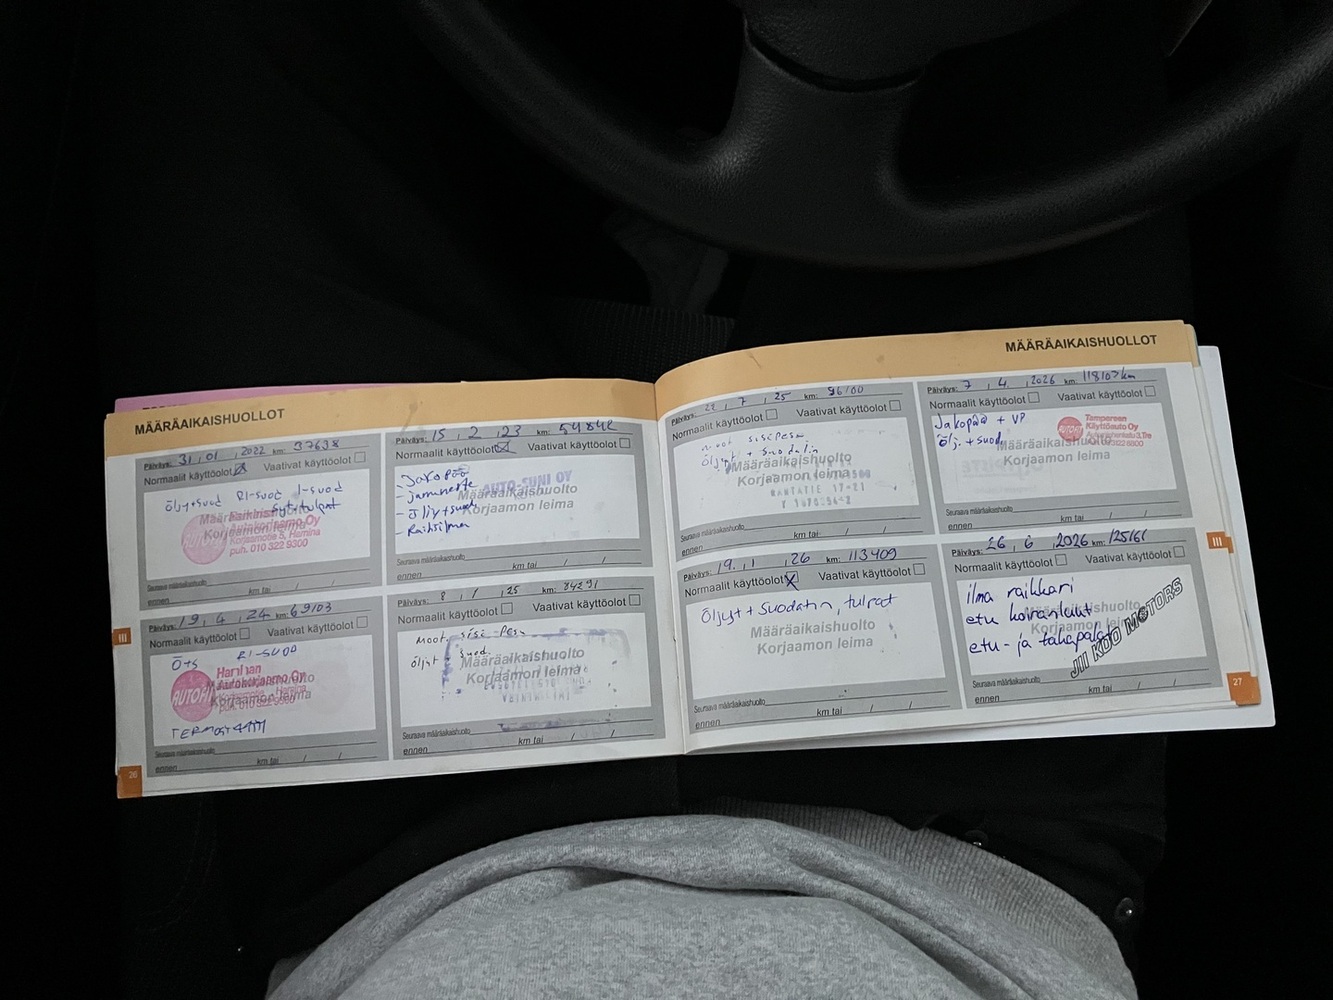 MÄÄRÄAIKAISHUOLLOT
Päiväys: 31 , 01 , 2022 km: 37638
Normaalit käyttöolot Vaativat käyttöolot
Öljy+suod RI-suod I-suod
Sytytulpat
Määräaikaishuolto
Korjaamon leima
Autokorjaamo Oy
Korjaamotie 5, Hamina
puh. 010 322 9300
Seuraava määräaikaishuolto
ennen km tai / /
Päiväys: 15 , 2 , 23 km: 54842
Normaalit käyttöolot Vaativat käyttöolot
- Jakopää
- jarruneste
- öljy+suod
- Raitisilma
AUTO-SUNI OY
Määräaikaishuolto
Korjaamon leima
Seuraava määräaikaishuolto
ennen km tai / /
Päiväys: 19 , 4 , 24 km: 69103
Normaalit käyttöolot Vaativat käyttöolot
Ö+S RI-SUOD
AUTOFIT
Haminan
Autokorjaamo Oy
Määräaikaishuolto
Korjaamon leima
TERMOSTAATTI
Seuraava määräaikaishuolto
ennen km tai / /
Päiväys: 8 , 1 , 25 km: 84291
Normaalit käyttöolot Vaativat käyttöolot
moot. sisä-Pesu
öljyt + suod.
Määräaikaishuolto
Korjaamon leima
Seuraava määräaikaishuolto
ennen km tai / /
26
III
MÄÄRÄAIKAISHUOLLOT
Päiväys: 22 , 7 , 25 km: 96100
Normaalit käyttöolot Vaativat käyttöolot
moot sisäpesu
öljyt + suodatin
Määräaikaishuolto
Korjaamon leima
Seuraava määräaikaishuolto
ennen km tai / /
Päiväys: 7 , 4 , 2026 km: 118107km
Normaalit käyttöolot Vaativat käyttöolot
Jakopää + VP
Öljy. + suod.
Tampereen
Käyttöauto Oy
Määräaikaishuolto
Korjaamon leima
Seuraava määräaikaishuolto
ennen km tai / /
Päiväys: 19 , 1 , 26 km: 113409
Normaalit käyttöolot Vaativat käyttöolot
Öljyt + Suodatin, tulpat
Määräaikaishuolto
Korjaamon leima
Seuraava määräaikaishuolto
ennen km tai / /
Päiväys: 26 , 6 , 2026 km: 125161
Normaalit käyttöolot Vaativat käyttöolot
ilma raikkari
etu koiranluut
etu- ja takapalat
Määräaikaishuolto
Korjaamon leima
JII KOO MOTORS
Seuraava määräaikaishuolto
ennen km tai / /
III
27